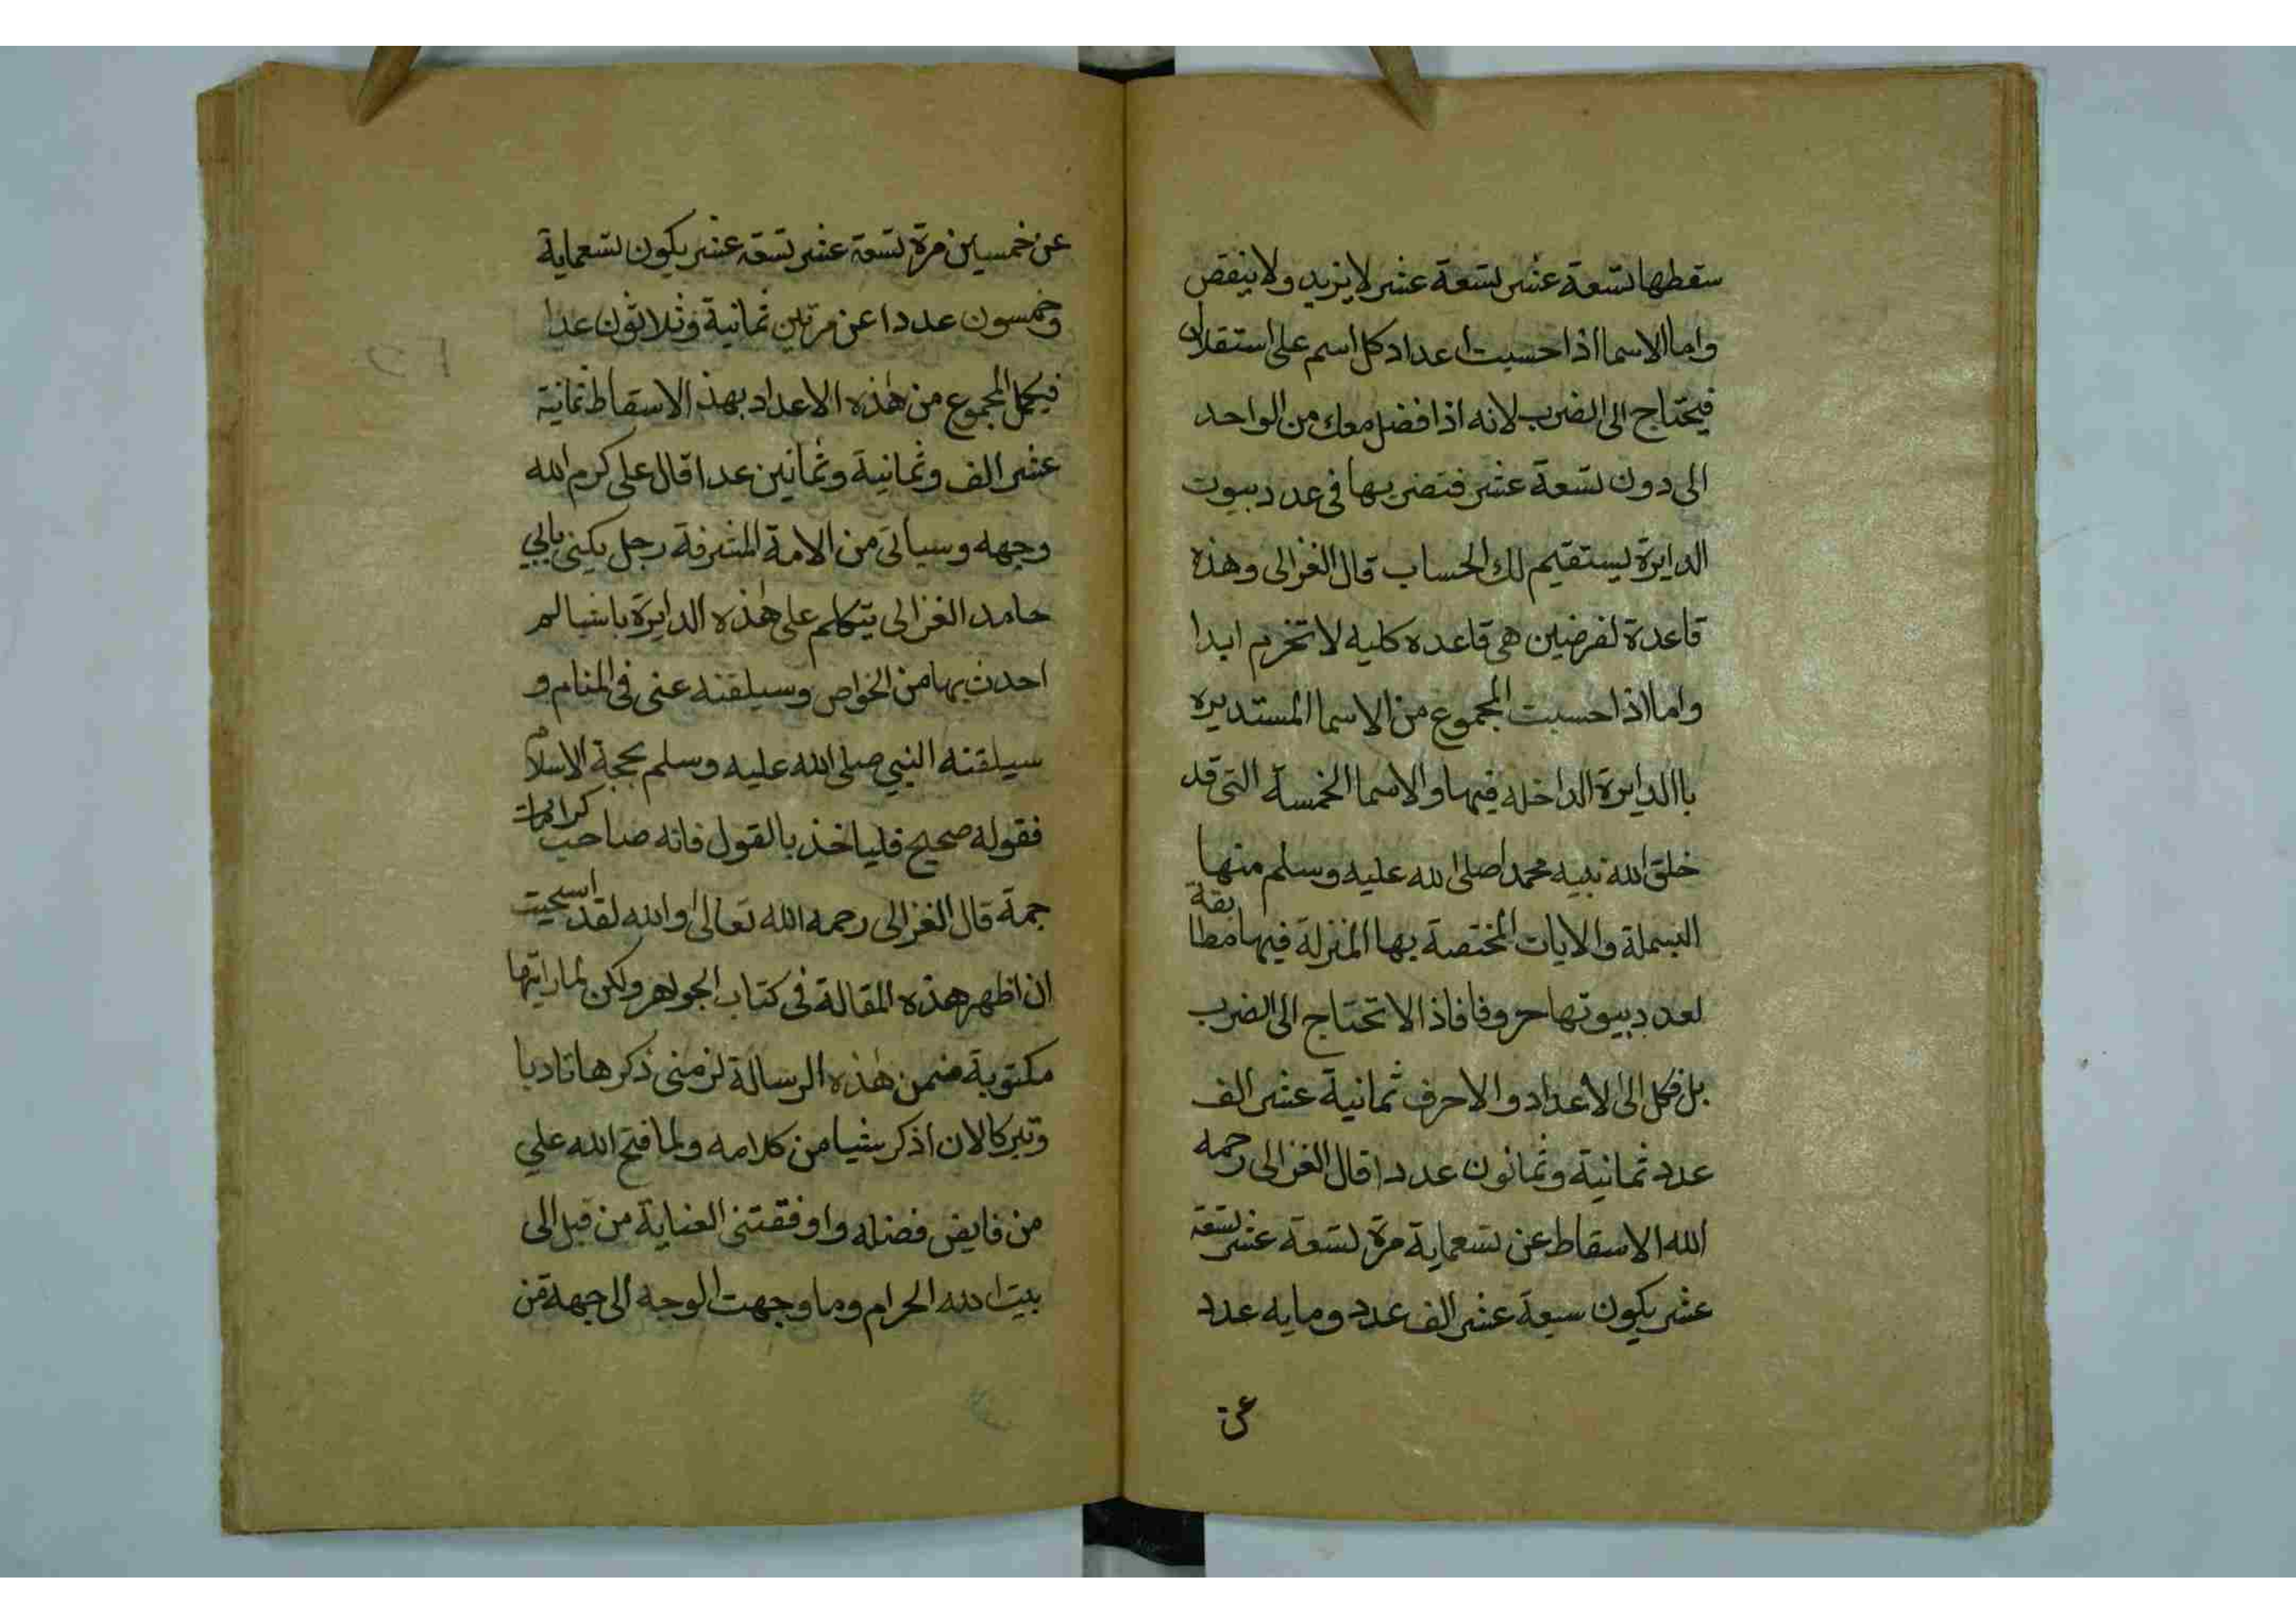 سقطها تسعة عشر تسعة عشر لا يزيد ولا ينقص
واما الاسما اذا حسبت اعداد كل اسم على استقلال
فيحتاج الى الضرب لانه اذا فضل معك من الواحد
الى دون تسعة عشر فتضربها فى عدد بيوت
الدايرة يستقيم لك الحساب قال الغزالى وهذه
قاعدة لفرضين هى قاعده كليه لا تخرم ابدا
واما اذا حسبت المجموع من الاسما المستديره
باالدايرة الداخله فيها والاسما الخمسة التى قد
خلق الله نبيه محمدا صلى الله عليه وسلم منها
البسملة والايات المختصة بها المنزلة فيها مطابقة
لعدد بيوتها حروفا فاذا لا تحتاج الى الضرب
بل فكل الى الاعداد والاحرف ثمانية عشر الف
عدد ثمانية وثمانون عددا قال الغزالى رحمه
الله الاسقاط عن تسعماية مرة تسعة عشر تسعة
عشر يكون سبعة عشر الف عدد ومايه عدد
عن
عن خمسين مرة تسعة عشر تسعة عشر يكون تسعماية
وخمسون عددا عن مرتين ثمانية وثلاثون عدا
فيكمل المجموع من هذه الاعداد بهذ الاسقاط ثمانية
عشر الف وثمانية وثمانين عدا قال على كرم الله
وجهه وسياتى من الامة المشرفة رجل يكنى بابي
حامد الغزالى يتكلم على هذه الدايرة باشيا لم
احدث بها من الخواص وسيلقنه عنى فى المنام و
سيلقنه النبي صلى الله عليه وسلم بحجة الاسلام
فقوله صحيح فلياخذ بالقول فانه صاحب كرامات
جمة قال الغزالى رحمه الله تعالى والله لقد اسحيت
ان اظهر هذه المقالة فى كتاب الجواهر ولكن لما رايتها
مكتوبة ضمن هذه الرسالة لزمنى ذكرها تادبا
وتبركا لان اذكر شيا من كلامه ولما فتح الله علي
من فايض فضله واوفقتنى العناية من قبل الى
بيت الله الحرام وما وجهت الوجه الى جهة من